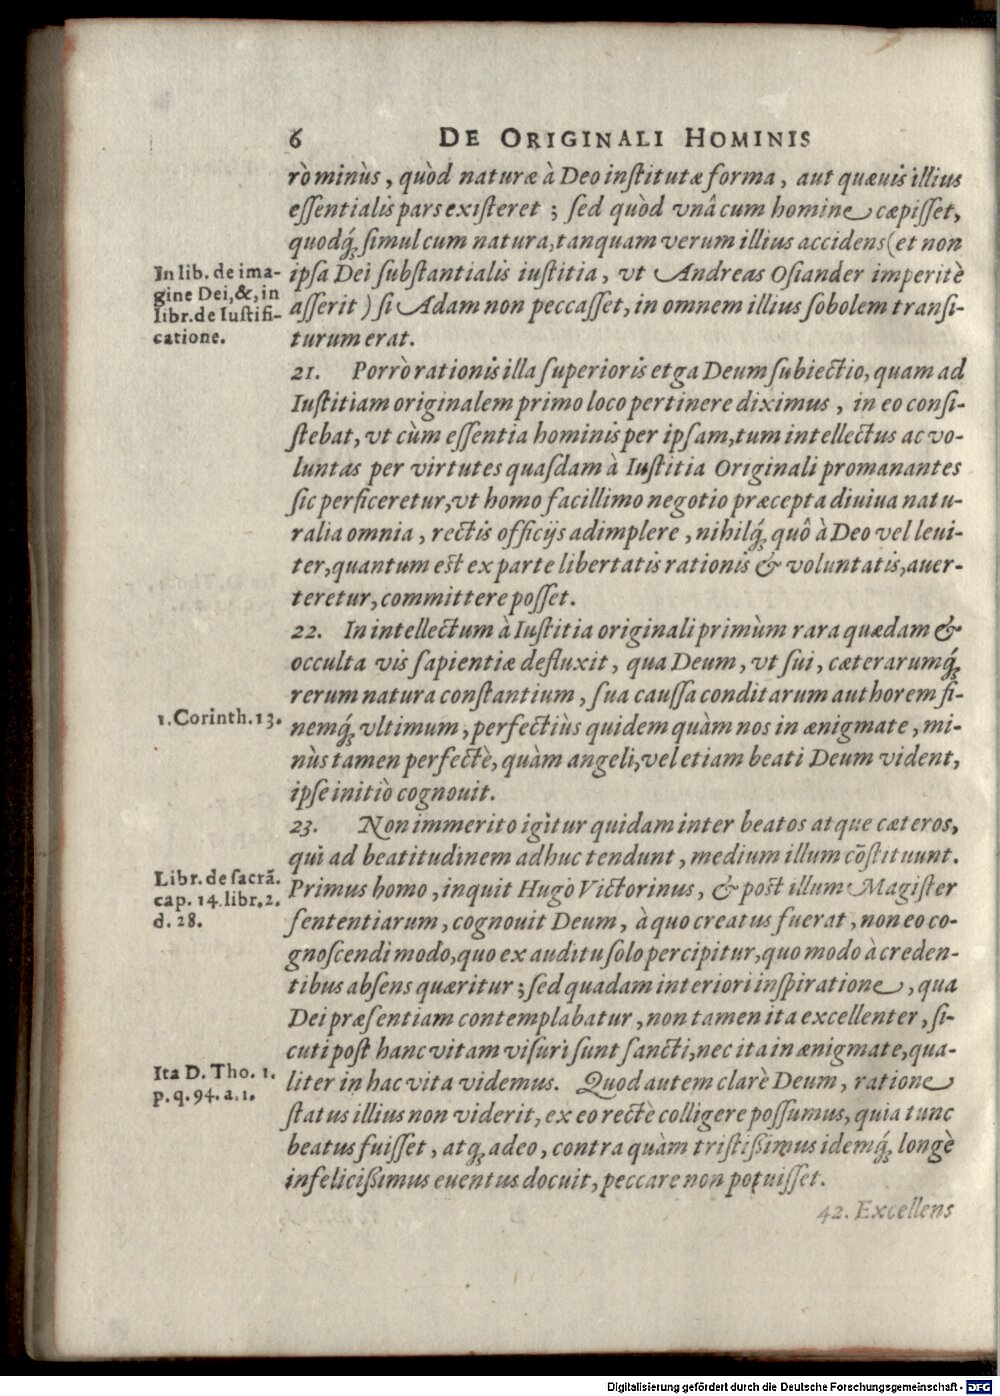 6 DE ORIGINALI HOMINIS
rò minùs, quòd naturæ à Deo inſtitutæ forma, aut quæuis illius
eſſentialis pars exiſteret; ſed quòd vnâ cum homine cæpiſſet,
quodq́; ſimul cum natura, tanquam verum illius accidens (et non
In lib. de ima-
gine Dei, &, in
libr. de Iuſtifi-
catione.
ipſa Dei ſubſtantialis iuſtitia, vt Andreas Oſiander imperitè
aſſerit) ſi Adam non peccaſſet, in omnem illius ſobolem tranſi-
turum erat.
21. Porrò rationis illa ſuperioris etga Deum ſubiectio, quam ad
Iuſtitiam originalem primo loco pertinere diximus, in eo conſi-
ſtebat, vt cùm eſſentia hominis per ipſam, tum intellectus ac vo-
luntas per virtutes quaſdam à Iuſtitia Originali promanantes
ſic perficeretur, vt homo facillimo negotio præcepta diuiua natu-
ralia omnia, rectis officijs adimplere, nihilq́; quô à Deo vel leui-
ter, quantum eſt ex parte libertatis rationis & voluntatis, auer-
teretur, committere poſſet.
22. In intellectum à Iuſtitia originali primùm rara quædam &
occulta vis ſapientiæ defluxit, qua Deum, vt ſui, cæterarumq́;
rerum natura conſtantium, ſua cauſſa conditarum authorem fi-
1. Corinth. 13.
nemq́; vltimum, perfectiùs quidem quàm nos in ænigmate, mi-
nùs tamen perfectè, quàm angeli, vel etiam beati Deum vident,
ipſe initiò cognouit.
23. Non immerito igitur quidam inter beatos atque cæteros,
qui ad beatitudinem adhuc tendunt, medium illum cõſtituunt.
Libr. de ſacrã.
cap. 14. libr. 2.
d. 28.
Primus homo, inquit Hugo Victorinus, & poſt illum Magiſter
ſententiarum, cognouit Deum, à quo creatus fuerat, non eo co-
gnoſcendi modo, quo ex auditu ſolo percipitur, quo modo à creden-
tibus abſens quæritur; ſed quadam interiori inſpiratione, qua
Dei præſentiam contemplabatur, non tamen ita excellenter, ſi-
cuti poſt hanc vitam viſuri ſunt ſancti, nec ita in ænigmate, qua-
Ita D. Tho. 1.
p. q. 94. a. 1.
liter in hac vita videmus. Quod autem clarè Deum, ratione
ſtatus illius non viderit, ex eo rectè colligere poſſumus, quia tunc
beatus fuiſſet, atq; adeo, contra quàm triſtißimus idemq́; longè
infelicißimus euentus docuit, peccare non potuiſſet.
42. Excellens
Digitalisierung gefördert durch die Deutsche Forschungsgemeinschaft - DFG